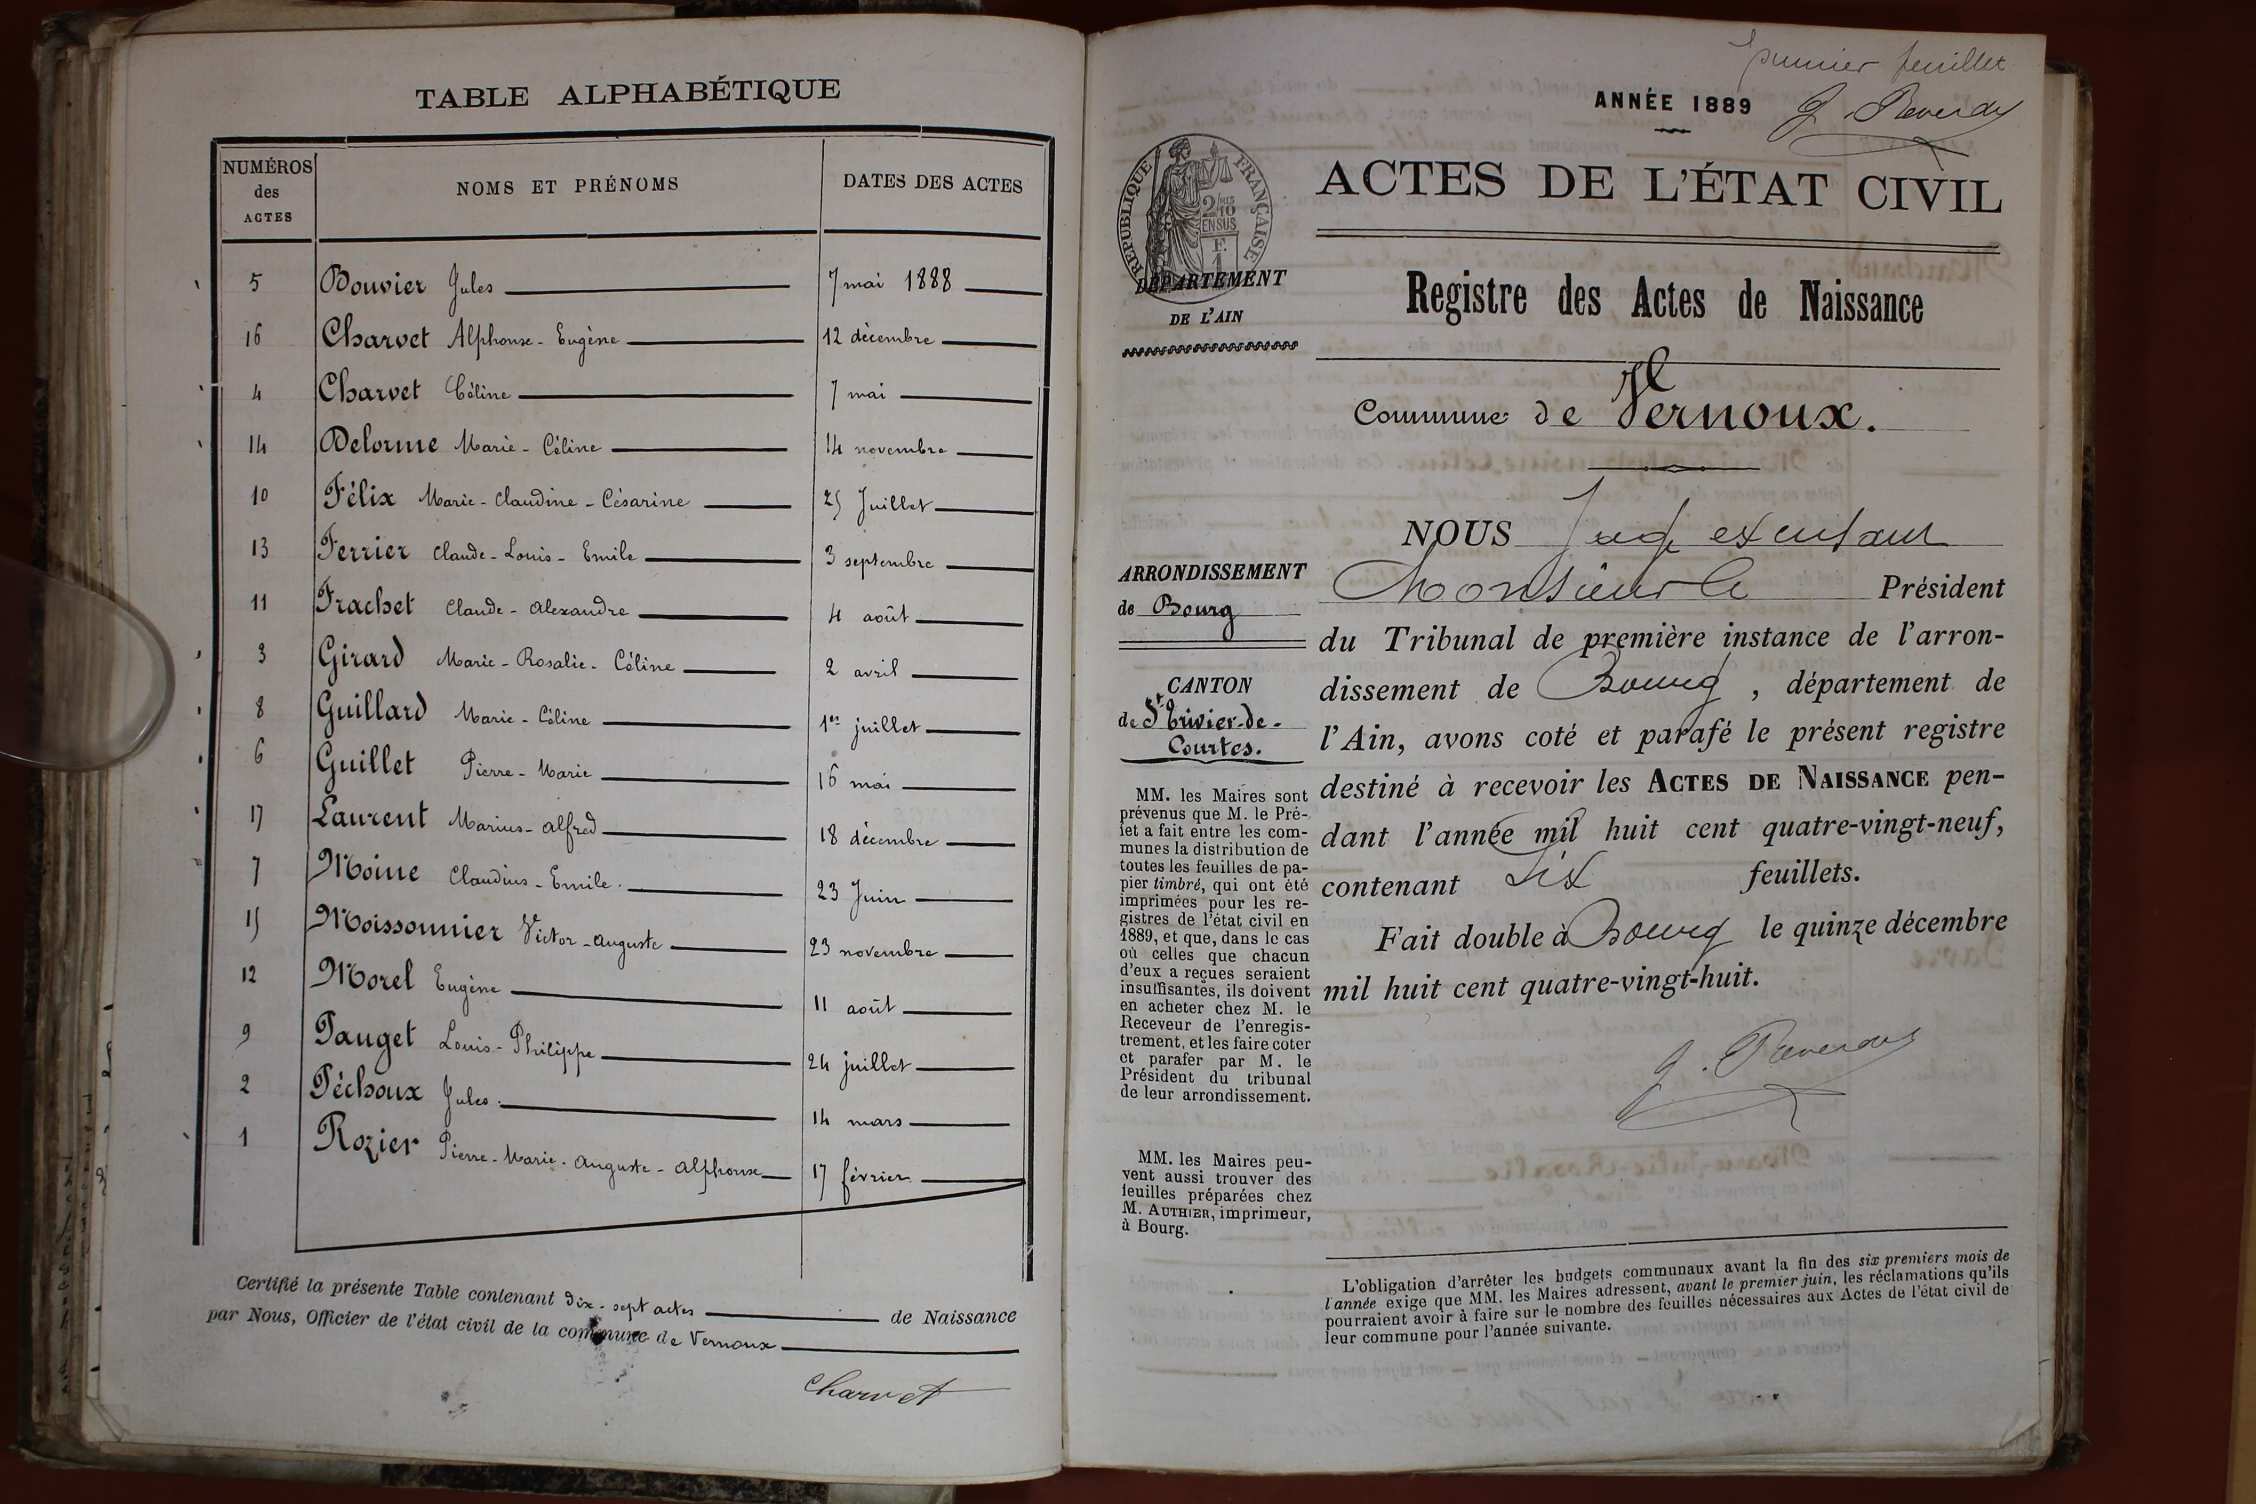 TABLE ALPHABÉTIQUE
NUMÉROS des ACTES NOMS ET PRÉNOMS DATES DES ACTES
5 Bouvier Jules 7 mai 1888
16 Charvet Alphonse-Eugène 12 décembre
4 Charvet Céline 7 mai
14 Delorme Marie-Céline 14 novembre
10 Félix Marie-Claudine-Césarine 25 Juillet
13 Ferrier Claude-Louis-Emile 3 septembre
11 Frachet Claude-Alexandre 4 août
3 Girard Marie-Rosalie-Céline 2 avril
8 Guillard Marie-Céline 1er juillet
6 Guillet Pierre-Marie 16 mai
17 Laurent Marius-Alfred 18 décembre
7 Moine Claudius-Emile. 23 Juin
15 Moissonnier Victor-Auguste 23 novembre
12 Morel Eugène 11 août
9 Pauget Louis-Philippe 24 juillet
2 Péchoux Jules. 14 mars
1 Rozier Pierre-Marie-Auguste-Alphonse 17 février
Certifié la présente Table contenant dix-sept actes de Naissance
par Nous, Officier de l'état civil de la commune de Vernoux
Charvet
Premier feuillet
ANNÉE 1889
RÉPUBLIQUE FRANÇAISE
2/10 EN SUS
F.
1
ACTES DE L'ÉTAT CIVIL
DÉPARTEMENT
DE L'AIN
Registre des Actes de Naissance
Commune de Vernoux.
ARRONDISSEMENT
de Bourg
CANTON
de St Trivier-de-
Courtes.
MM. les Maires sont
prévenus que M. le Pré-
fet a fait entre les com-
munes la distribution de
toutes les feuilles de pa-
pier timbré, qui ont été
imprimées pour les re-
gistres de l'état civil en
1889, et que, dans le cas
où celles que chacun
d'eux a reçues seraient
insuffisantes, ils doivent
en acheter chez M. le
Receveur de l'enregis-
trement, et les faire coter
et parafer par M. le
Président du tribunal
de leur arrondissement.
MM. les Maires peu-
vent aussi trouver des
feuilles préparées chez
M. AUTHIER, imprimeur,
à Bourg.
NOUS
Monsieur le Président
du Tribunal de première instance de l'arron-
dissement de Bourg, département de
l'Ain, avons coté et parafé le présent registre
destiné à recevoir les ACTES DE NAISSANCE pen-
dant l'année mil huit cent quatre-vingt-neuf,
contenant six feuillets.
Fait double à Bourg le quinze décembre
mil huit cent quatre-vingt-huit.
L'obligation d'arrêter les budgets communaux avant la fin des six premiers mois de
l'année exige que MM. les Maires adressent, avant le premier juin, les réclamations qu'ils
pourraient avoir à faire sur le nombre des feuilles nécessaires aux Actes de l'état civil de
leur commune pour l'année suivante.